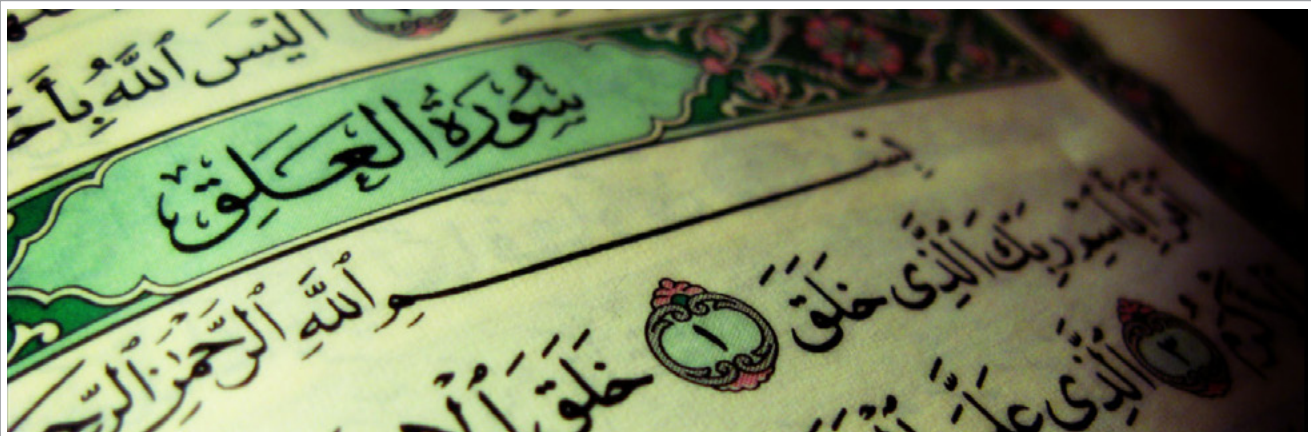 أَلَيْسَ ٱللَّهُ بِأَحْ
سُورَةُ العَلَقِ
بِسْمِ ٱللَّهِ ٱلرَّحْمَٰنِ ٱلرَّحِ
ٱقْرَأْ بِٱسْمِ رَبِّكَ ٱلَّذِى خَلَقَ ١ خَلَقَ
٣ ٱلَّذِى عَلَّمَ